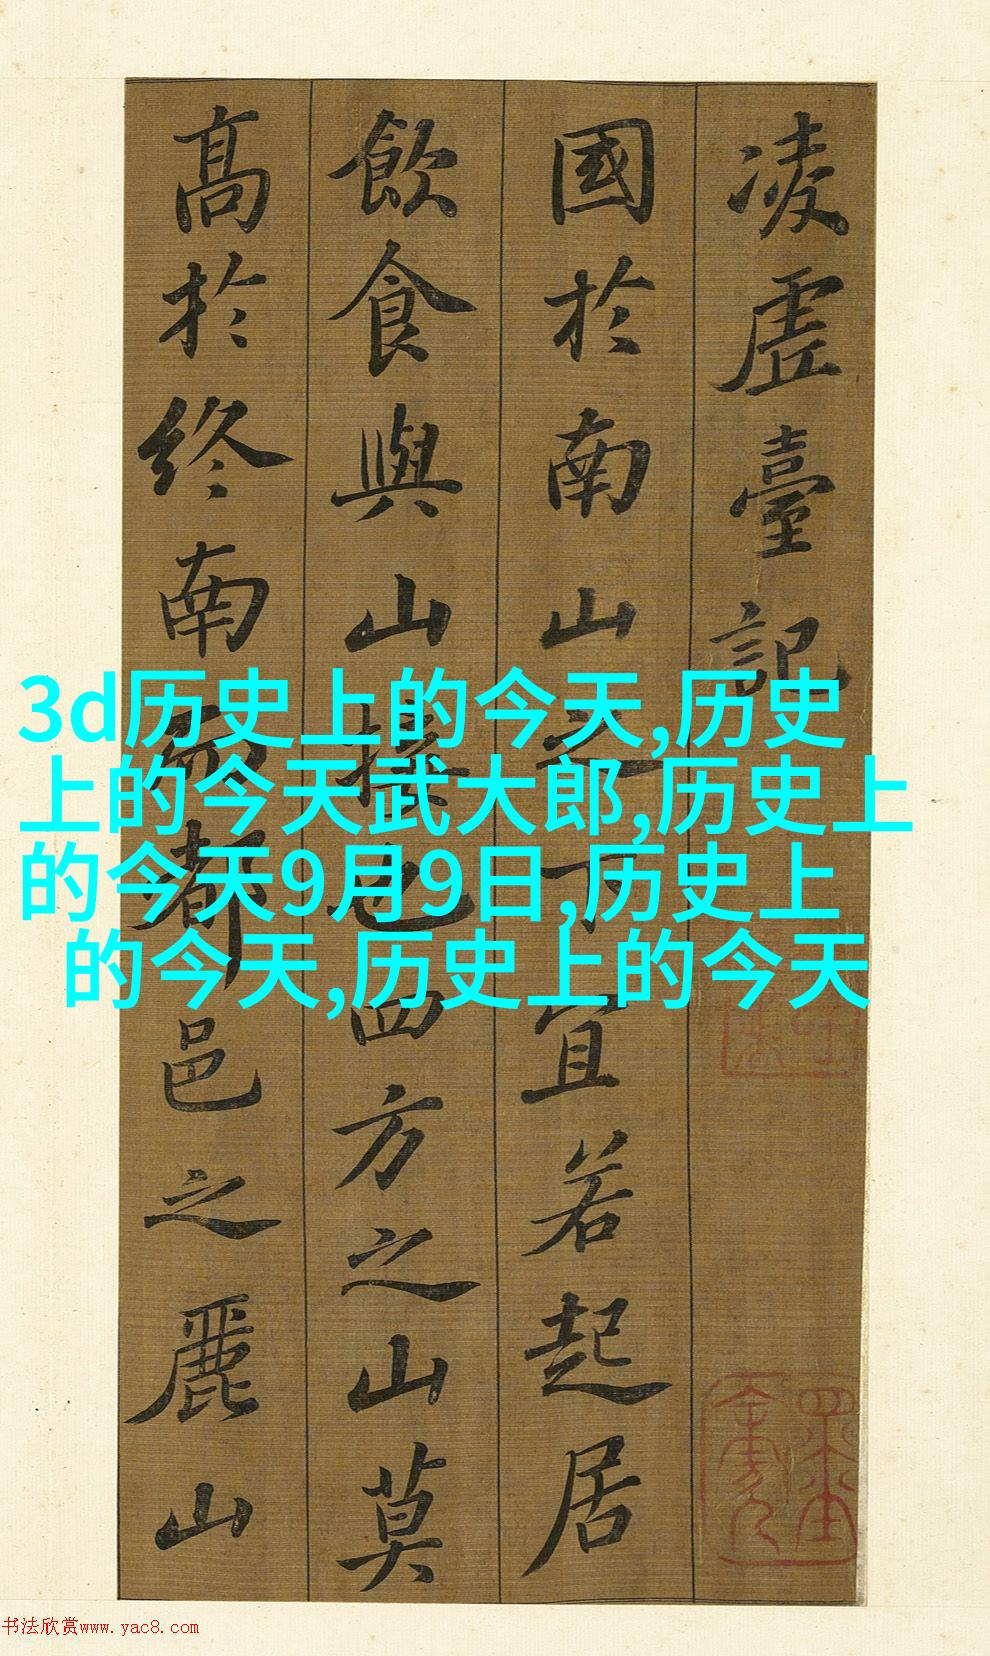 凌虛臺記
國於南山之下宜若起居
飲食與山接也四方之山莫
高於終南而都邑之麗山
3d历史上的今天,历史
上的今天武大郎,历史上
的今天9月9日,历史上
的今天,历史上的今天
书法欣赏www.yac8.com